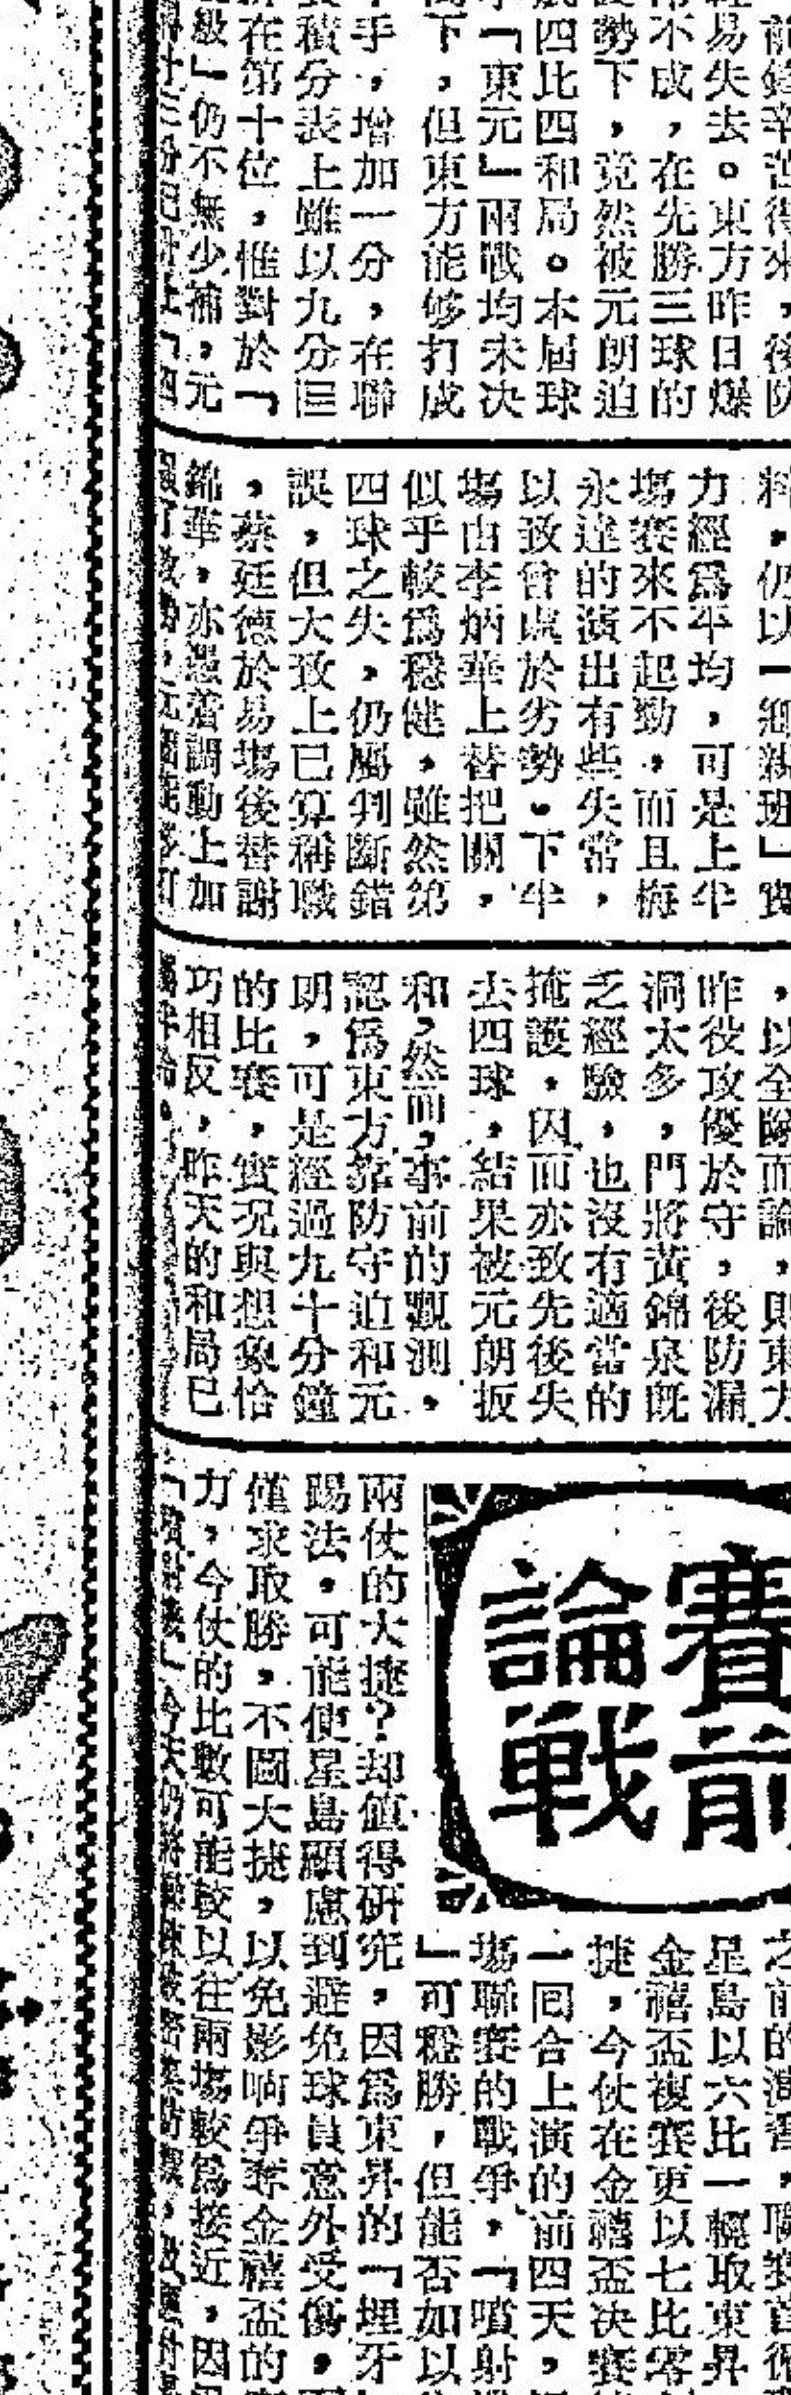 前鋒辛苦得來，後防
易失去。東方昨日爆
不成，在先勝三球的
勢下，竟然被元朗迫
四比四和局。本屆球
「東元」兩戰均未決
下，但東方能够打成
手，增加一分，在聯
積分表上雖以九分
在第十位，惟對於「
級」仍不無少補，元
料，仍以一
力經爲平均，可是上半
塲賽來不起勁，而且梅
永達的演出有些失常，
以致曾處於劣勢。下半
塲由李炳華上替把關，
似乎較爲穩健，雖然第
四球之失，仍屬判斷錯
誤，但大致上已算稱職
，蔡廷德於易塲後替謝
錦華，亦思着調動上加
，以全隊而論，則東方
昨役攻優於守，後防漏
洞太多，門將黃錦泉旣
乏經驗，也沒有適當的
掩護，因而亦致先後失
去四球，結果被元朗扳
和，然而，事前的觀測，
認爲東方靠防守迫和元
朗，可是經過九十分鐘
的比賽，實況與想象恰
巧相反，昨天的和局已
賽前
論戰
之前的演習，聯賽首循
星島以六比一輕取東昇
金禧盃複賽更以七比零
捷，今仗在金禧盃决賽
一回合上演的前四天，
塲聯賽的戰爭，「噴射
」可穩勝，但能否如以
兩仗的大捷？却值得研究，因爲東昇的「埋牙
踢法，可能使星島顧慮到避免球員意外受傷，
僅求取勝，不圖大捷，以免影响爭奪金禧盃的
力，今仗的比數可能較以往兩塲較爲接近，因